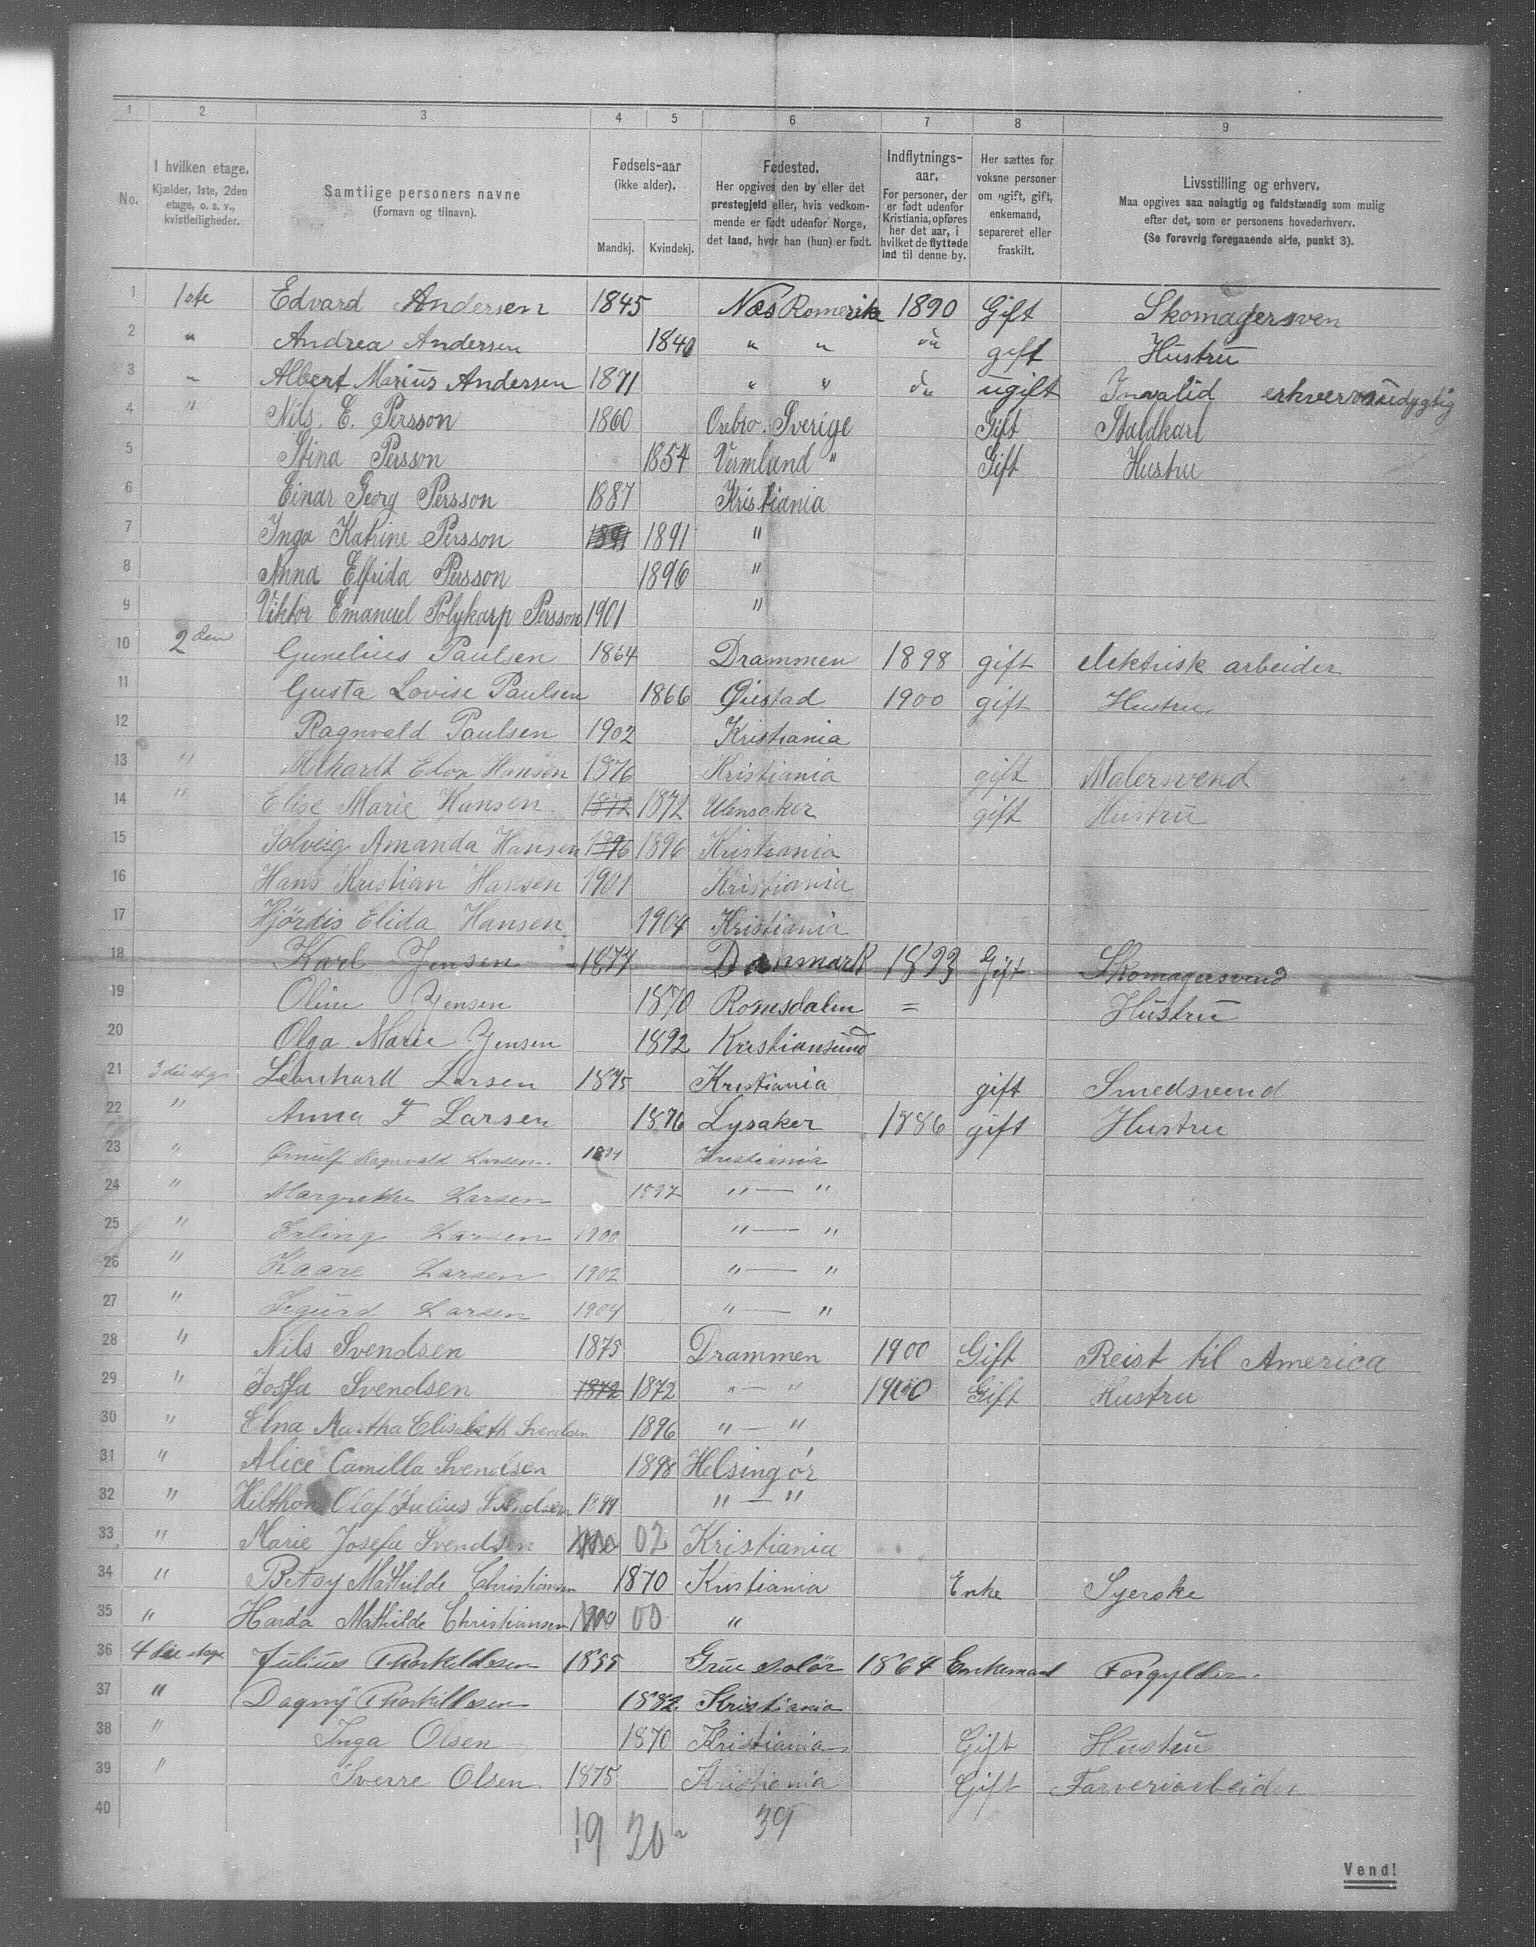 1 2 3 4 5 6 7 8 9
No. I hvilken etage. Kjælder, 1ste, 2den etage, o. s. v., kvistleiligheder.
Samtlige personers navne (Fornavn og tilnavn).
Fødsels-aar (ikke alder). Mandkj. Kvindekj.
Fødested. Her opgives den by eller det prestegjeld eller, hvis vedkommende er født udenfor Norge, det land, hvor han (hun) er født.
Indflytnings-aar. For personer, der er født udenfor Kristiania, opføres her det aar, i hvilket de flyttede ind til denne by.
Her sættes for voksne personer om ugift, gift, enkemand, separeret eller fraskilt.
Livsstilling og erhverv. Maa opgives saa nøiagtig og fuldstændig som mulig efter det, som er personens hovederhverv. (Se forøvrig foregaaende side, punkt 3).
1 1ste Edvard Andersen 1845 Næs Romerike 1890 Gift Skomagersven
2 " Andrea Andersen 1840 " " du gift Hustru
3 " Albert Marius Andersen 1871 " " du ugift Invalid erhvervsudygtig
4 " Nils. E. Persson 1860 Orebro. Sverige Gift Staldkarl
5 Stina Persson 1854 Vermland " Gift Hustru
6 Einar Georg Persson 1887 Kristiania
7 Inga Katrine Persson 1891 1891 "
8 Anna Elfrida Persson 1896 "
9 Viktor Emanuel Polykarp Persson 1901 "
10 2den Gunelius Paulsen 1864 Drammen 1898 gift elektrisk arbeider
11 Gusta Lovise Paulsen 1866 Øiestad 1900 gift Hustru
12 Ragnvald Paulsen 1902 Kristiania
13 " Edon Hansen 1876 Kristiania gift Malersvend
14 " Elise Marie Hansen 1872 1872 Ulensaker gift Hustru
15 Solveig Amanda Hansen 1896 1896 Kristiania
16 Hans Kristian Hansen 1901 Kristiania
17 Hjördis Elida Hansen 1904 Kristiania
18 Karl Jensen 1874 Danmark 1893 Gift Skomagersvend
19 Oline Jensen 1870 Romsdalen = Hustru
20 Olga Marie Jensen 1892 Kristiansund
21 3die etg Leonhard Larsen 1875 Kristiania gift Smedsvend
22 " Anna F Larsen 1876 Lysaker 1886 gift Hustru
23 " Ragnvald Larsen 1894 Kristiania
24 " Margrethe Larsen 1897 " — "
25 " Erling Larsen 1900 " — "
26 " Kaare Larsen 1902 " — "
27 " Sigurd Larsen 1904 " — "
28 " Nils Svendsen 1875 Drammen 1900 Gift Reist til America
29 " Josefa Svendsen 1872 1872 " — " 1900 Gift Hustru
30 " Elna Martha Elisabeth Svendsen 1896 " — "
31 " Alice Camilla Svendsen 1898 Helsingör
32 " Olaf Julius Svendsen 1899 " — "
33 " Marie Josefa Svendsen 02 Kristiania
34 " Betsy Mathilde Christiansen 1870 Kristiania Enke Syerske
35 " Harda Mathilde Christiansen 1900 00 "
36 4die etage Julius Thorkildsen 1855 Grue Solör 1864 Enkemand Forgylder
37 " Dagny Thorkildsen 1882 Kristiania
38 " Inga Olsen 1870 Kristiania Gift Hustru
39 " Sverre Olsen 1875 Kristiania Gift Farveriarbeider
40
19 20 39
Vend!